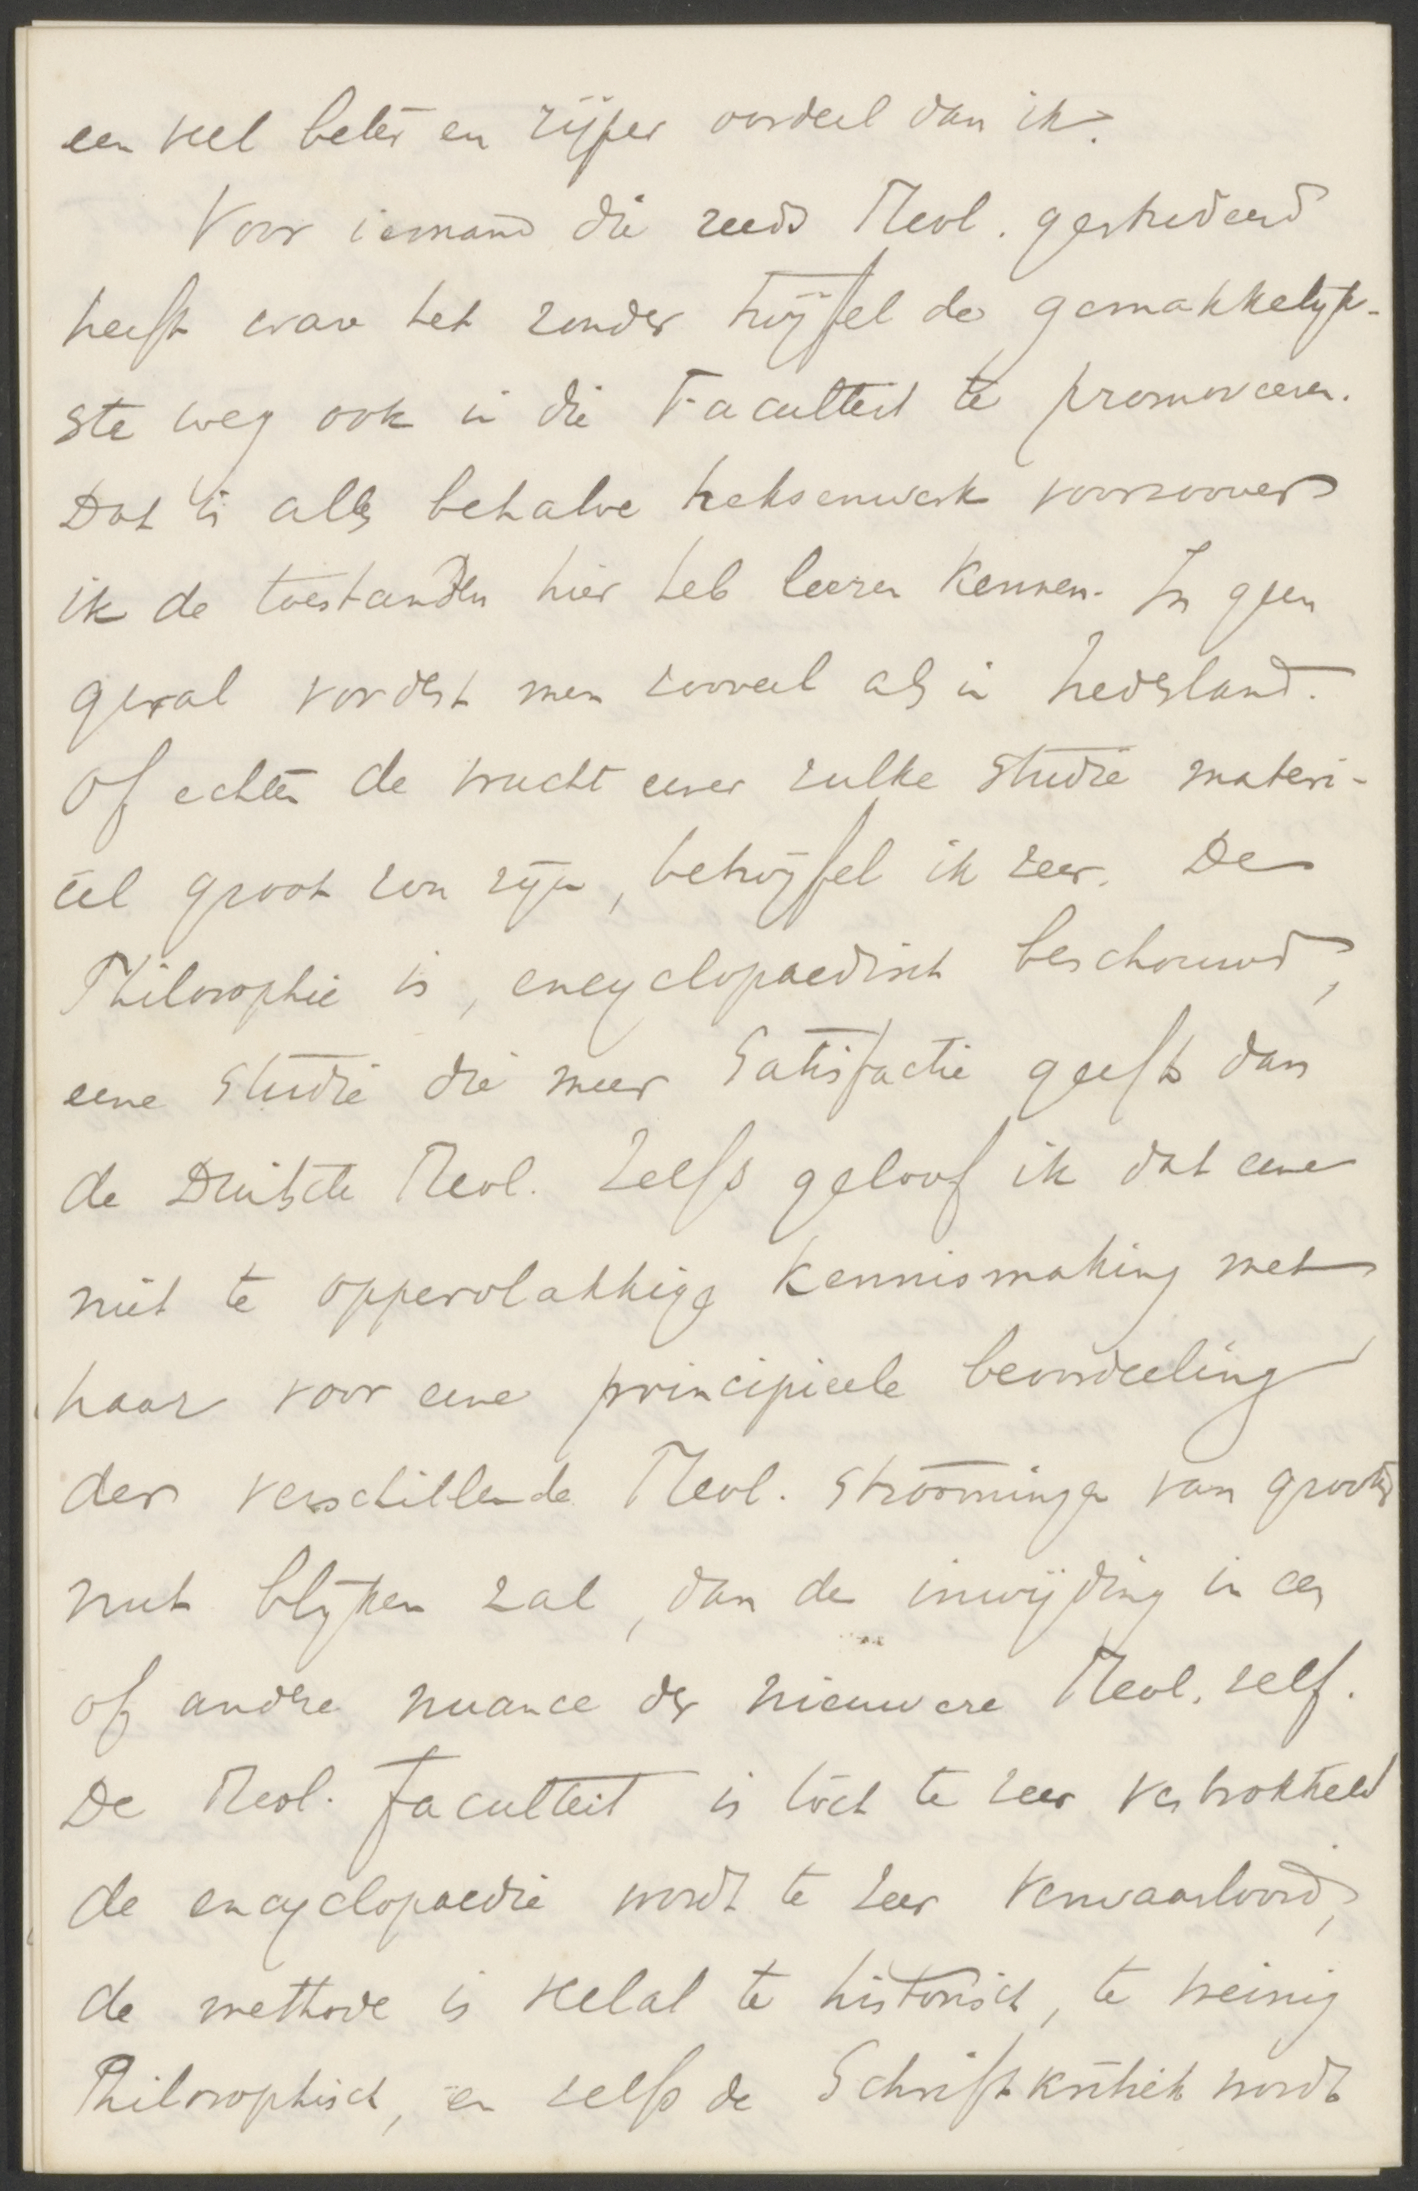 een veel beter en rijper oordeel dan ik.
Voor iemand die reeds Theol. gestudeerd
heeft ware het zonder twijfel de gemakkelijk-
ste weg ook in die Faculteit te promoveeren.
Dat is alles behalve heksenwerk voorzoover
ik de toestanden hier heb leeren kennen. In geen
geval vordert men zooveel als in Nederland.
Of echter de vrucht eener zulke studie materi-
eel groot zou zijn, betwijfel ik zeer. De
Philosophie is, encyclopaedisch beschouwd,
eene studie die meer Satisfactie geeft dan
de Duitsche Theol. Zelfs geloof ik dat eene
niet te oppervlakkige kennismaking met
haar voor eene principieele beoordeeling
der verschillende Theol. stroomingen van grooter
nut blijken zal, dan de inwijding in een
of andere nuance der nieuwere Theol. zelf.
De Theol. Faculteit is toch te zeer verbrokkeld
de encyclopaedie wordt te zeer verwaarloosd,
de methode is veelal te historisch, te weinig
Philosophisch, en zelfs de Schriftkritiek wordt